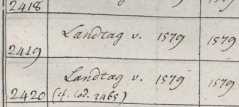 2418
2419 Landtag v. 1579 1579
Landtag v. 1579 1579
2420 (cf. Cod. 2465)